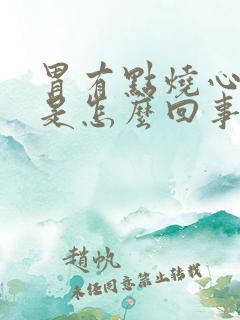 胃有點燒心
是怎麼回事
趙帆
未经同意禁止转载